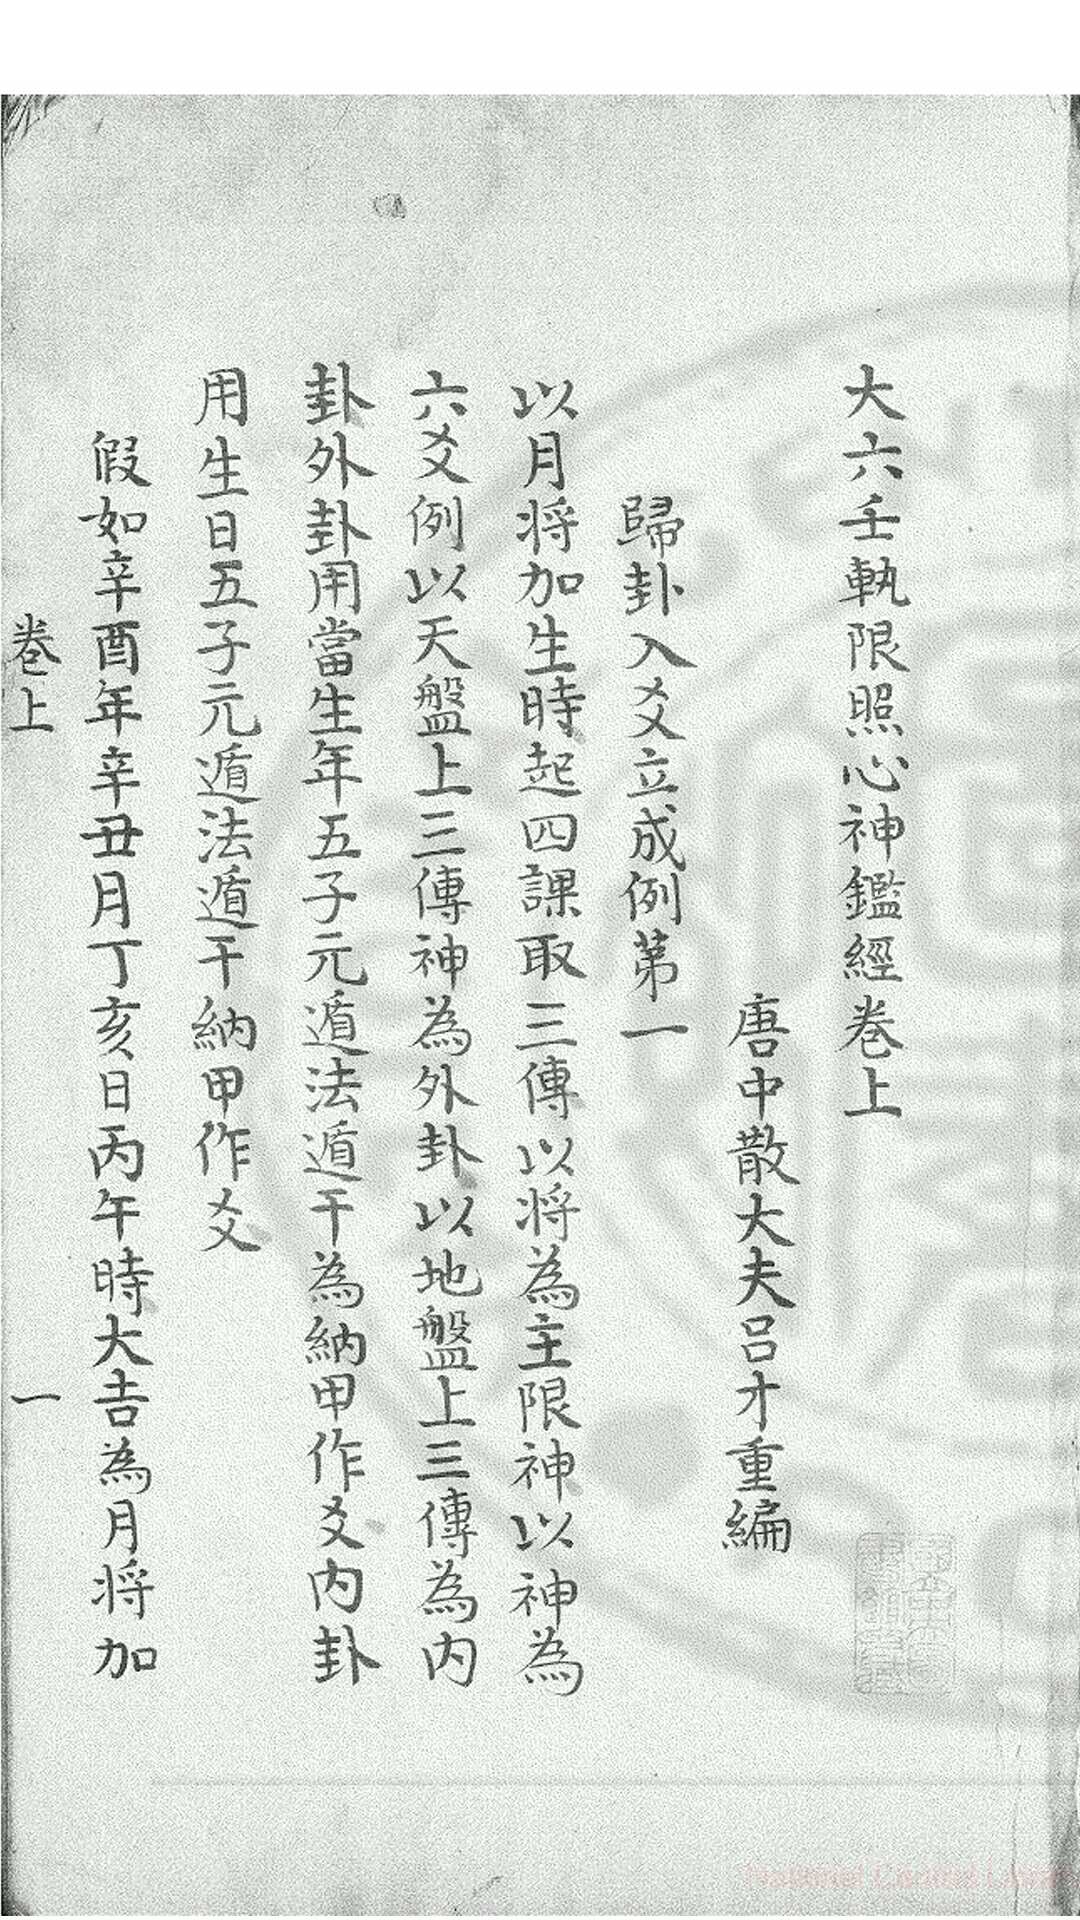 大六壬執限照心神鑑經卷上
唐中散大夫呂才重編
歸卦入爻立成例第一
以月將加生時起四課取三傳以將為主限神以神為
六爻例以天盤上三傳神為外卦以地盤上三傳為內
卦外卦用當生年五子元遁法遁干為納甲作爻內卦
用生日五子元遁法遁干納甲作爻
假如辛酉年辛丑月丁亥日丙午時大吉為月將加
卷上 一
National Central Library